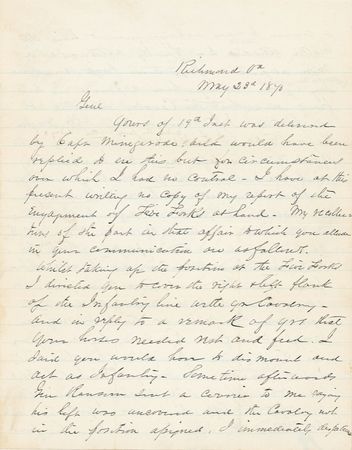 Richmond Va
May 23d 1870
Genl
Yours of 19th Inst was delivered
by Capt Minegerode and would have been
replied to ere this but for circumstances
over which I had no control - I have at this
present writing no copy of my report of the
engagement of Five Forks at hand - My recollec
tions of the part in that affair to which you allude
in your communication are as follows.
Whilst taking up the position at the Five Forks
I directed you to cover the right & left flank
of the Infantry line with yr Cavalry -
and in reply to a remark of yrs that
your horses needed rest and feed - I
said you would have to dismount and
act as Infantry - Sometime afterwards
Gen Ransom sent a courier to me saying
his left was uncovered and the Cavalry not
in the position assigned, I immediately